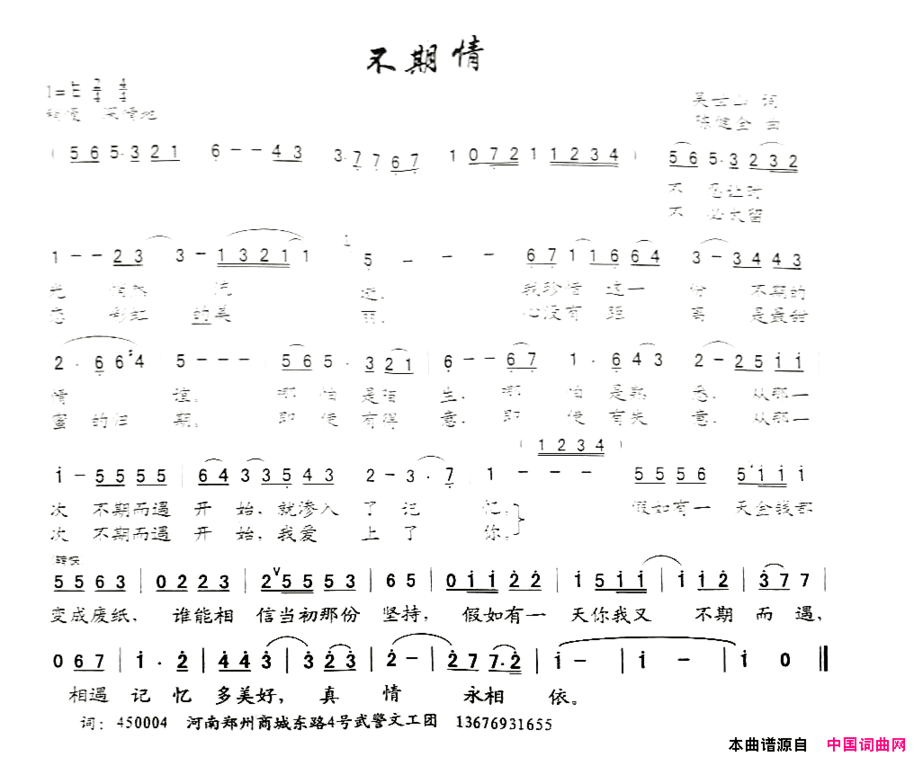 不期情
词
陈健全 曲
( 5 6 5· 3 2 1 6 - - 4 3 3· 7 7 6 7 1 0 7 2 1 1 2 3 4 ) 5 6 5· 3 2 3 2
不 忍让时
不 必久留
1 - - 2 3 3 - 1 3 2 1 1 5 - - - 6 7 1 1 6 6 4 3 - 3 4 4 3
光 流 逝, 我珍惜 这一 份 不期的
恋 彩虹 的美 丽, 心没有 距 离 是最甜
2· 6 6 4 5 - - - 5 6 5· 3 2 1 6 - - 6 7 1· 6 4 3 2 - 2 5 i i
情 谊。 那 怕 是陌 生, 哪 怕 是熟 悉, 从那一
蜜 的归 期。 即 使 有得 意, 即 使 有失 意, 从那一
( 1 2 3 4 )
i - 5 5 5 5 6 4 3 3 5 4 3 2 - 3· 7 1 - - - 5 5 5 6 5 i i i
次 不期而遇 开 始, 就渗入 了 记 忆, 假如有一 天金钱都
次 不期而遇 开 始, 我爱 上 了 你,
5 5 6 3 | 0 2 2 3 | 2 5 5 5 3 | 6 5 | 0 i i 2 2 | i 5 i i | i i 2 | 3 7 7 |
变成废纸, 谁能相 信当初那份 坚持, 假如有一 天你我又 不期 而遇,
0 6 7 | i· 2 | 4 4 3 | 3 2 3 | 2 - | 2 7 7· 2 | i - | i - | i 0 ‖
相遇 记忆 多美好, 真 情 永相 依。
词: 450004 河南郑州商城东路4号武警文工团 13676931655
本曲谱源自 中国词曲网